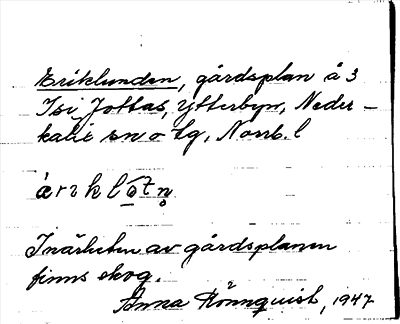 Eriklunden, gårdsplan å 3
Isi, Jottas, Ytterbyn, Neder-
kalix sn o tg, Norrb. l

Inärheten av gårdsplanen
finns skog.
Anna Rönnquist, 1947